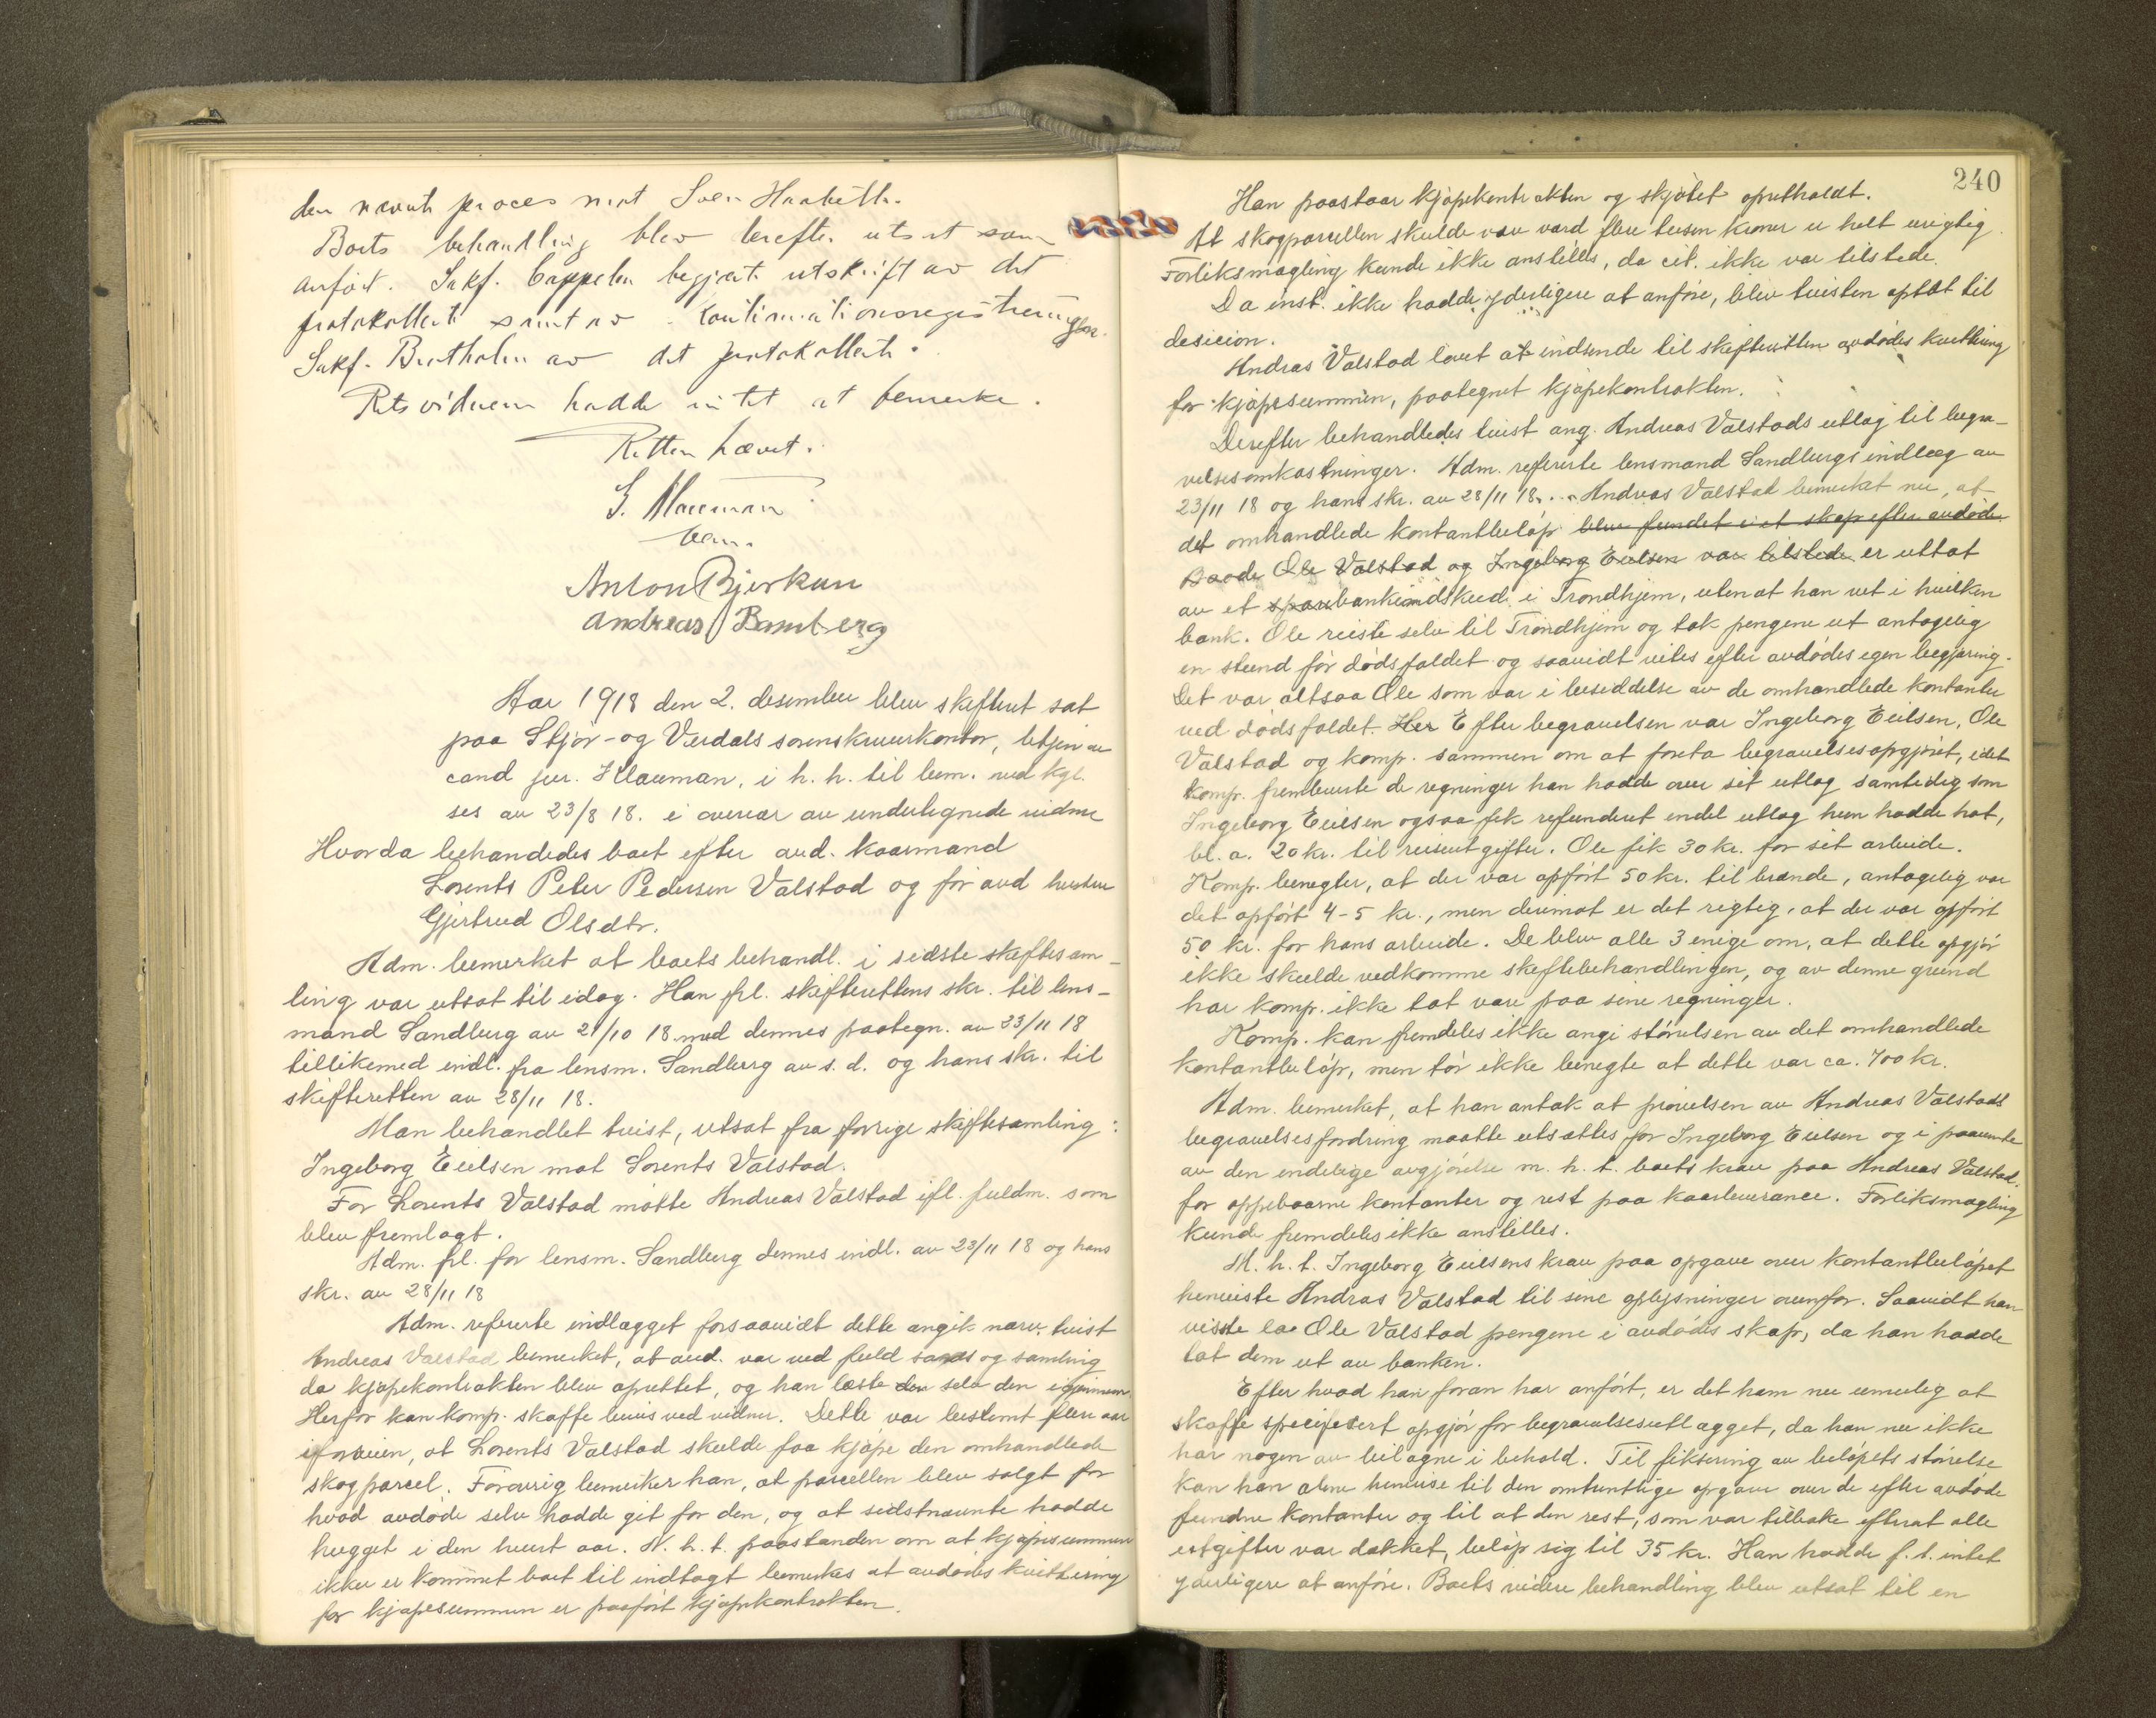 den nævnte proces mot Sven Haaketh.
Boets behandling blev derefter utsat som
anført. Sakf. Cappelen begjærte utskrift av det
protokollerte samt av kontinuationsregistreringen.
Sakf. Bertholm av det protokollerte.
Retsvidnene hadde intet at bemerke.
Retten hævet.
J. Klauman
bem.
Anton Bjerkan
Andreas Bamberg
Aar 1918 den 2. desember blev skifteret sat
paa Stjør- og Verdals sorenskriverkontor, betjen av
cand jur. J Klauman, i h. h. til bem. ved kgl.
res av 23/8 18. i overvær av undertegnede vidner
Hvorda behandledes boet efter avd. kaarmand
Lorents Peter Pedersen Valstad og før avd hustru
Gjertrud Olsdtr.
Adm. bemerket at boets behandl. i sidste skiftesam-
ling var utsat til idag. Han frl. skifterettens skr. til lens-
mand Sandberg av 21/10 18 med dennes paategn. av 23/11 18
tillikemed indl. fra lensm. Sandberg av s. d. og hans skr. til
skifteretten av 28/11 18.
Man behandlet tvist, utsat fra forrige skiftesamling:
Ingeborg Eilsen mot Lorents Valstad.
For Lorents Valstad møtte Andreas Valstad ifl. fuldm. som
blev fremlagt.
Adm. frl. for lensm. Sandberg dennes indl. av 23/11 18 og hans
skr. av 28/11 18
Adm. refererte indlægget forsaavidt dette angik nærv. tvist
Andreas Valstad bemerket, at avd. var ved fuld sans og samling
da kjøpekontrakten blev oprettet, og han læste den selv den igjennem.
Herfor kan komp. skaffe bevis ved vidner. Dette var bestemt flere aar
iforveien, at Lorents Valstad skulde faa kjøpe den omhandlede
skogparcel. Forøvrig bemerker han, at parcellen blev solgt for
hvad avdøde selv hadde git for den, og at sidstnævnte hadde
hugget i den hvert aar. M. h. t. paastanden om at kjøpesummen
ikke er kommet boet til indtægt bemerkes at avdødes kvittering
for kjøpesummen er paaført kjøpekontrakten.
240
Han paastaar kjøpekontrakten og skjøtet opretholdt.
At skogparcellen skulde være værd flere tusen kroner er helt urigtig.
Forliksmægling kunde ikke anstilles, da cit. ikke var tilstede.
Da inst. ikke hadde yderligere at anføre, blev tvisten optat til
desicion.
Andras Valstad lovet at indsende til skifteretten avdødes kvittering
for kjøpesummen, paategnet kjøpekontrakten.
Derefter behandledes tvist ang. Andreas Valstads utlæg til begra-
velsesomkostninger. Adm. refererte lensmand Sandbergs indlæg av
23/11 18 og hans skr. av 28/11 18. Andreas Valstad bemerket nu, at
det omhandlede kontantbeløp blev fundet i et skap efter avdøde
Baade Ole Valstad og Ingeborg Eielsen var tilstede er uttat
av et sparebankindskud i Trondhjem, uten at han vet i hvilken
bank. Ole reiste selv til Trondhjem og tok pengene ut antagelig
en stund før dødsfaldet og saavidt vites efter avdødes egen begjæring.
Det var altsaa Ole som var i besiddelse av de omhandlede kontanter
ved dødsfaldet. Her Efter begravelsen var Ingeborg Eielsen, Ole
Valstad og komp. sammen om at foreta begravelsesopgjøret, idet
komp. fremleverte de regninger han hadde over sit utlæg samtidig som
Ingeborg Eielsen ogsaa fik refunderet endel utlæg hun hadde hat,
bl. a. 20 kr. til reiseutgifter. Ole fik 30 kr. for sit arbeide.
Komp. benegter, at der var opført 50 kr. til brænde, antagelig var
det opført 4-5 kr., men derimot er det rigtig, at der var opført
50 kr. for hans arbeide. De blev alle 3 enige om, at dette opgjør
ikke skulde vedkomme skiftebehandlingen, og av denne grund
har komp. ikke tat vare paa sine regninger.
Komp. kan fremdeles ikke angi størrelsen av det omhandlede
kontantbeløp, men tør ikke benegte at dette var ca. 700 kr.
Adm. bemerket, at han antok at prøvelsen av Andreas Valstads
begravelsesfordring maatte utsættes for Ingeborg Eielsen og i paavente
av den endelige avgjørelse m. h. t. boets krav paa Andreas Valstad.
for oppebaarne kontanter og rest paa kaarleverance. Forliksmægling
kunde fremdeles ikke anstilles.
M. h. t. Ingeborg Eielsens krav paa opgave over kontantbeløpet
henviste Andras Valstad til sine oplysninger ovenfor. Saavidt han
visste la Ole Valstad pengene i avdødes skap, da han hadde
tat dem ut av banken.
Efter hvad han foran har anført, er det ham nu umulig at
skaffe specifisert opgjør for begravelsesutlægget, da han nu ikke
har nogen av bilagne i behold. Til fiksering av beløpets størrelse
kan han alene henvise til den omtrentlige opgave over de efter avdøde
fundne kontanter og til at den rest, som var tilbake efterat alle
utgifter var dækket, beløp sig til 35 kr. Han hadde f. t. intet
yderligere at anføre. Boets videre behandling blev utsat til en